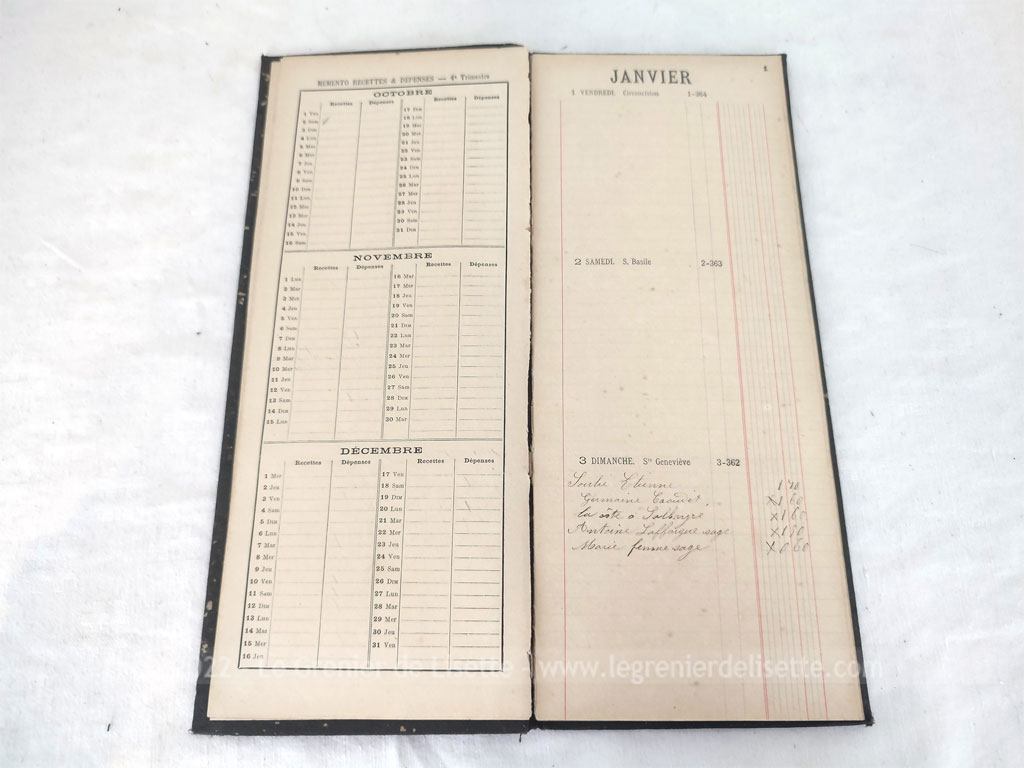 MEMENTO RECETTES & DÉPENSES — 4e Trimestre
OCTOBRE
Recettes Dépenses Recettes Dépenses
1 Ven 17 Dim
2 Sam 18 Lun
3 Dim 19 Mar
4 Lun 20 Mer
5 Mar 21 Jeu
6 Mer 22 Ven
7 Jeu 23 Sam
8 Ven 24 Dim
9 Sam 25 Lun
10 Dim 26 Mar
11 Lun 27 Mer
12 Mar 28 Jeu
13 Mer 29 Ven
14 Jeu 30 Sam
15 Ven 31 Dim
16 Sam
NOVEMBRE
Recettes Dépenses Recettes Dépenses
1 Lun 16 Mar
2 Mar 17 Mer
3 Mer 18 Jeu
4 Jeu 19 Ven
5 Ven 20 Sam
6 Sam 21 Dim
7 Dim 22 Lun
8 Lun 23 Mar
9 Mar 24 Mer
10 Mer 25 Jeu
11 Jeu 26 Ven
12 Ven 27 Sam
13 Sam 28 Dim
14 Dim 29 Lun
15 Lun 30 Mar
DÉCEMBRE
Recettes Dépenses Recettes Dépenses
1 Mer 17 Ven
2 Jeu 18 Sam
3 Ven 19 Dim
4 Sam 20 Lun
5 Dim 21 Mar
6 Lun 22 Mer
7 Mar 23 Jeu
8 Mer 24 Ven
9 Jeu 25 Sam
10 Ven 26 Dim
11 Sam 27 Lun
12 Dim 28 Mar
13 Lun 29 Mer
14 Mar 30 Jeu
15 Mer 31 Ven
16 Jeu
JANVIER 1
1 VENDREDI. Circoncision 1-364
2 SAMEDI. S. Basile 2-363
3 DIMANCHE. Ste Geneviève 3-362
Etienne
Germaine
la côte à
Antoine Laffargue sage
Marie femme sage
22 - Le Grenier de Lisette - www.legrenierdelisette.com